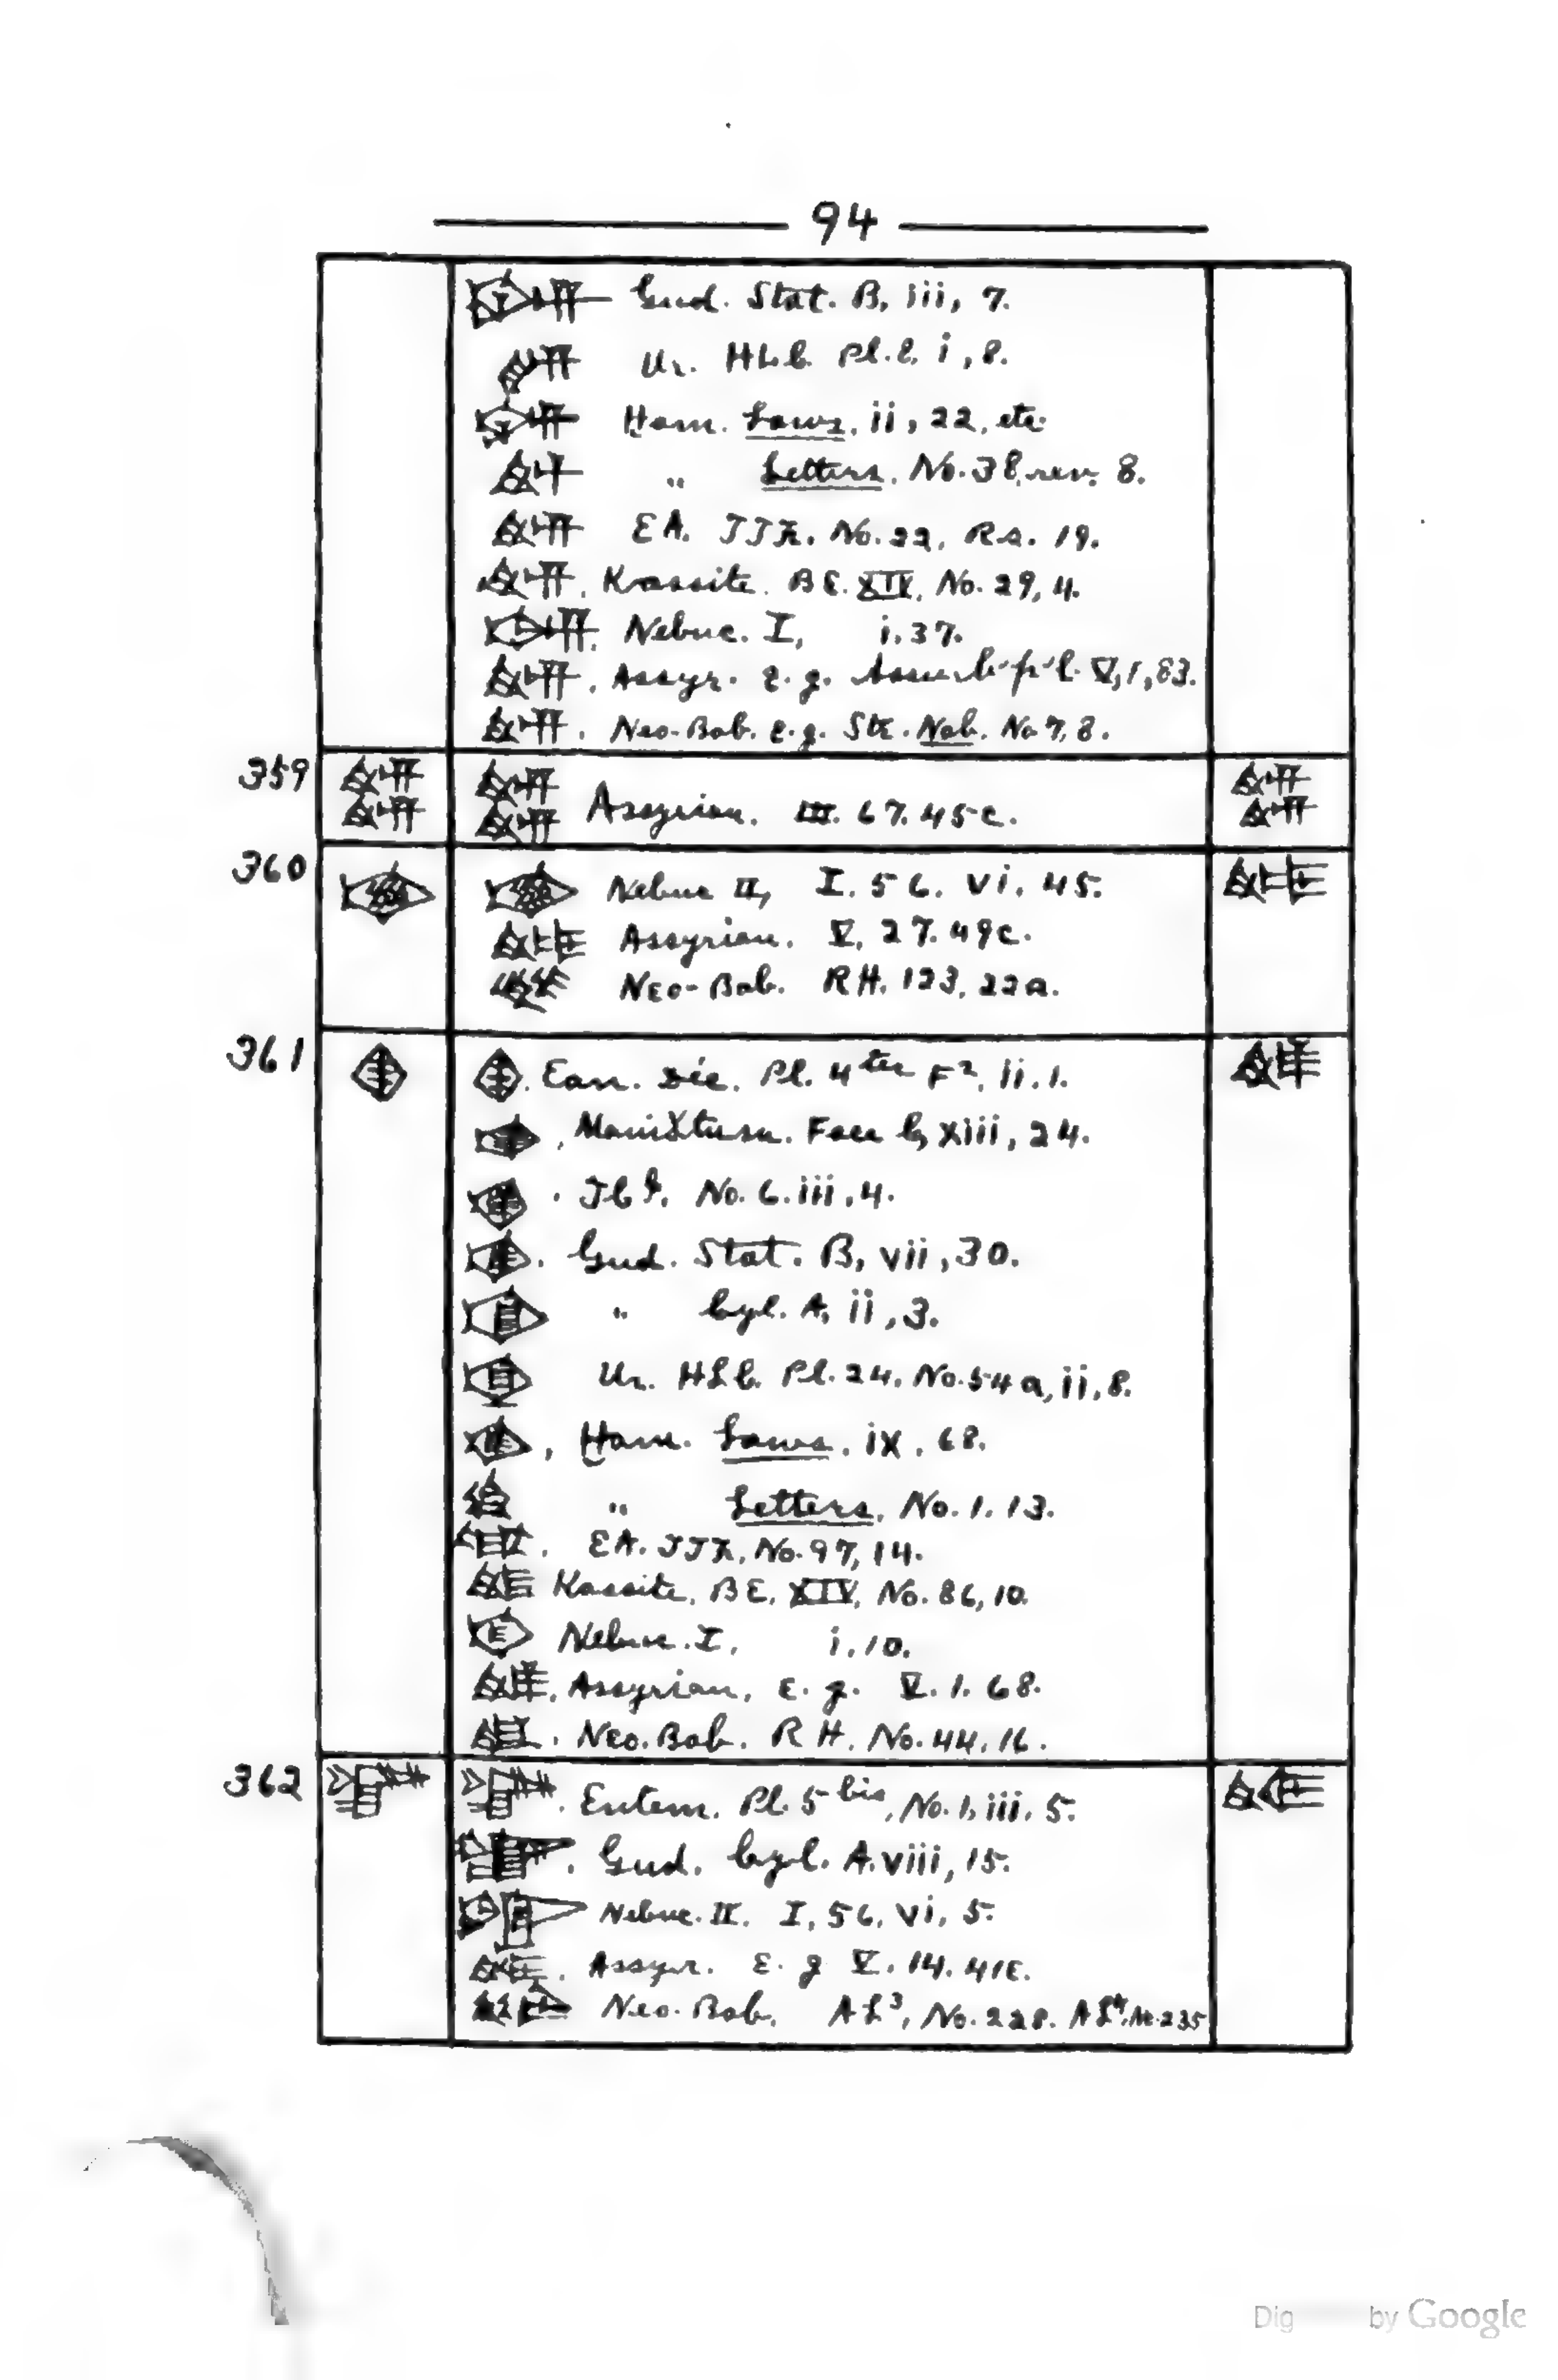 94
Gud. Stat. B, iii, 7.
Ur. HLC. Pl. 2, i, 8.
Ḫam. Laws, ii, 22, etc.
„ Letters, No. 38, rev. 8.
EA. No. 22, Rs. 19.
Kassite. BE. XIV, No. 29, 4.
Nebuc. I, i. 37.
Assyr. e.g. V, 1, 83.
Neo-Bab. e.g. Str. Nab. No 7, 8.
359 Assyrian. III. 67. 45c.
360 Nebuc II, I. 56. vi. 45.
Assyrian. V, 27. 49c.
Neo-Bab. RH. 123, 22a.
361 Ean. Déc. Pl. 4ter F2, ii. 1.
Face xiii, 24.
No. 6. iii, 4.
Gud. Stat. B, vii, 30.
„ Cyl. A, ii, 3.
Ur. HLC. Pl. 24, No. 54a, ii, 8.
Ḫam. Laws, ix, 68.
„ Letters, No. 1. 13.
EA. No. 97, 14.
Kassite, BE. XIV, No. 86, 10.
Nebuc. I, i, 10.
Assyrian, e.g. V. 1. 68.
Neo. Bab. RH. No. 44, 16.
362 Entem. Pl. 5bis, No. 1, iii. 5.
Gud. Cyl. A. viii, 15.
Nebuc. II. I, 56, vi, 5.
Assyr. e.g V. 14. 41E.
Neo-Bab. AL3, No. 228. AL4, No. 235
Dig by Google